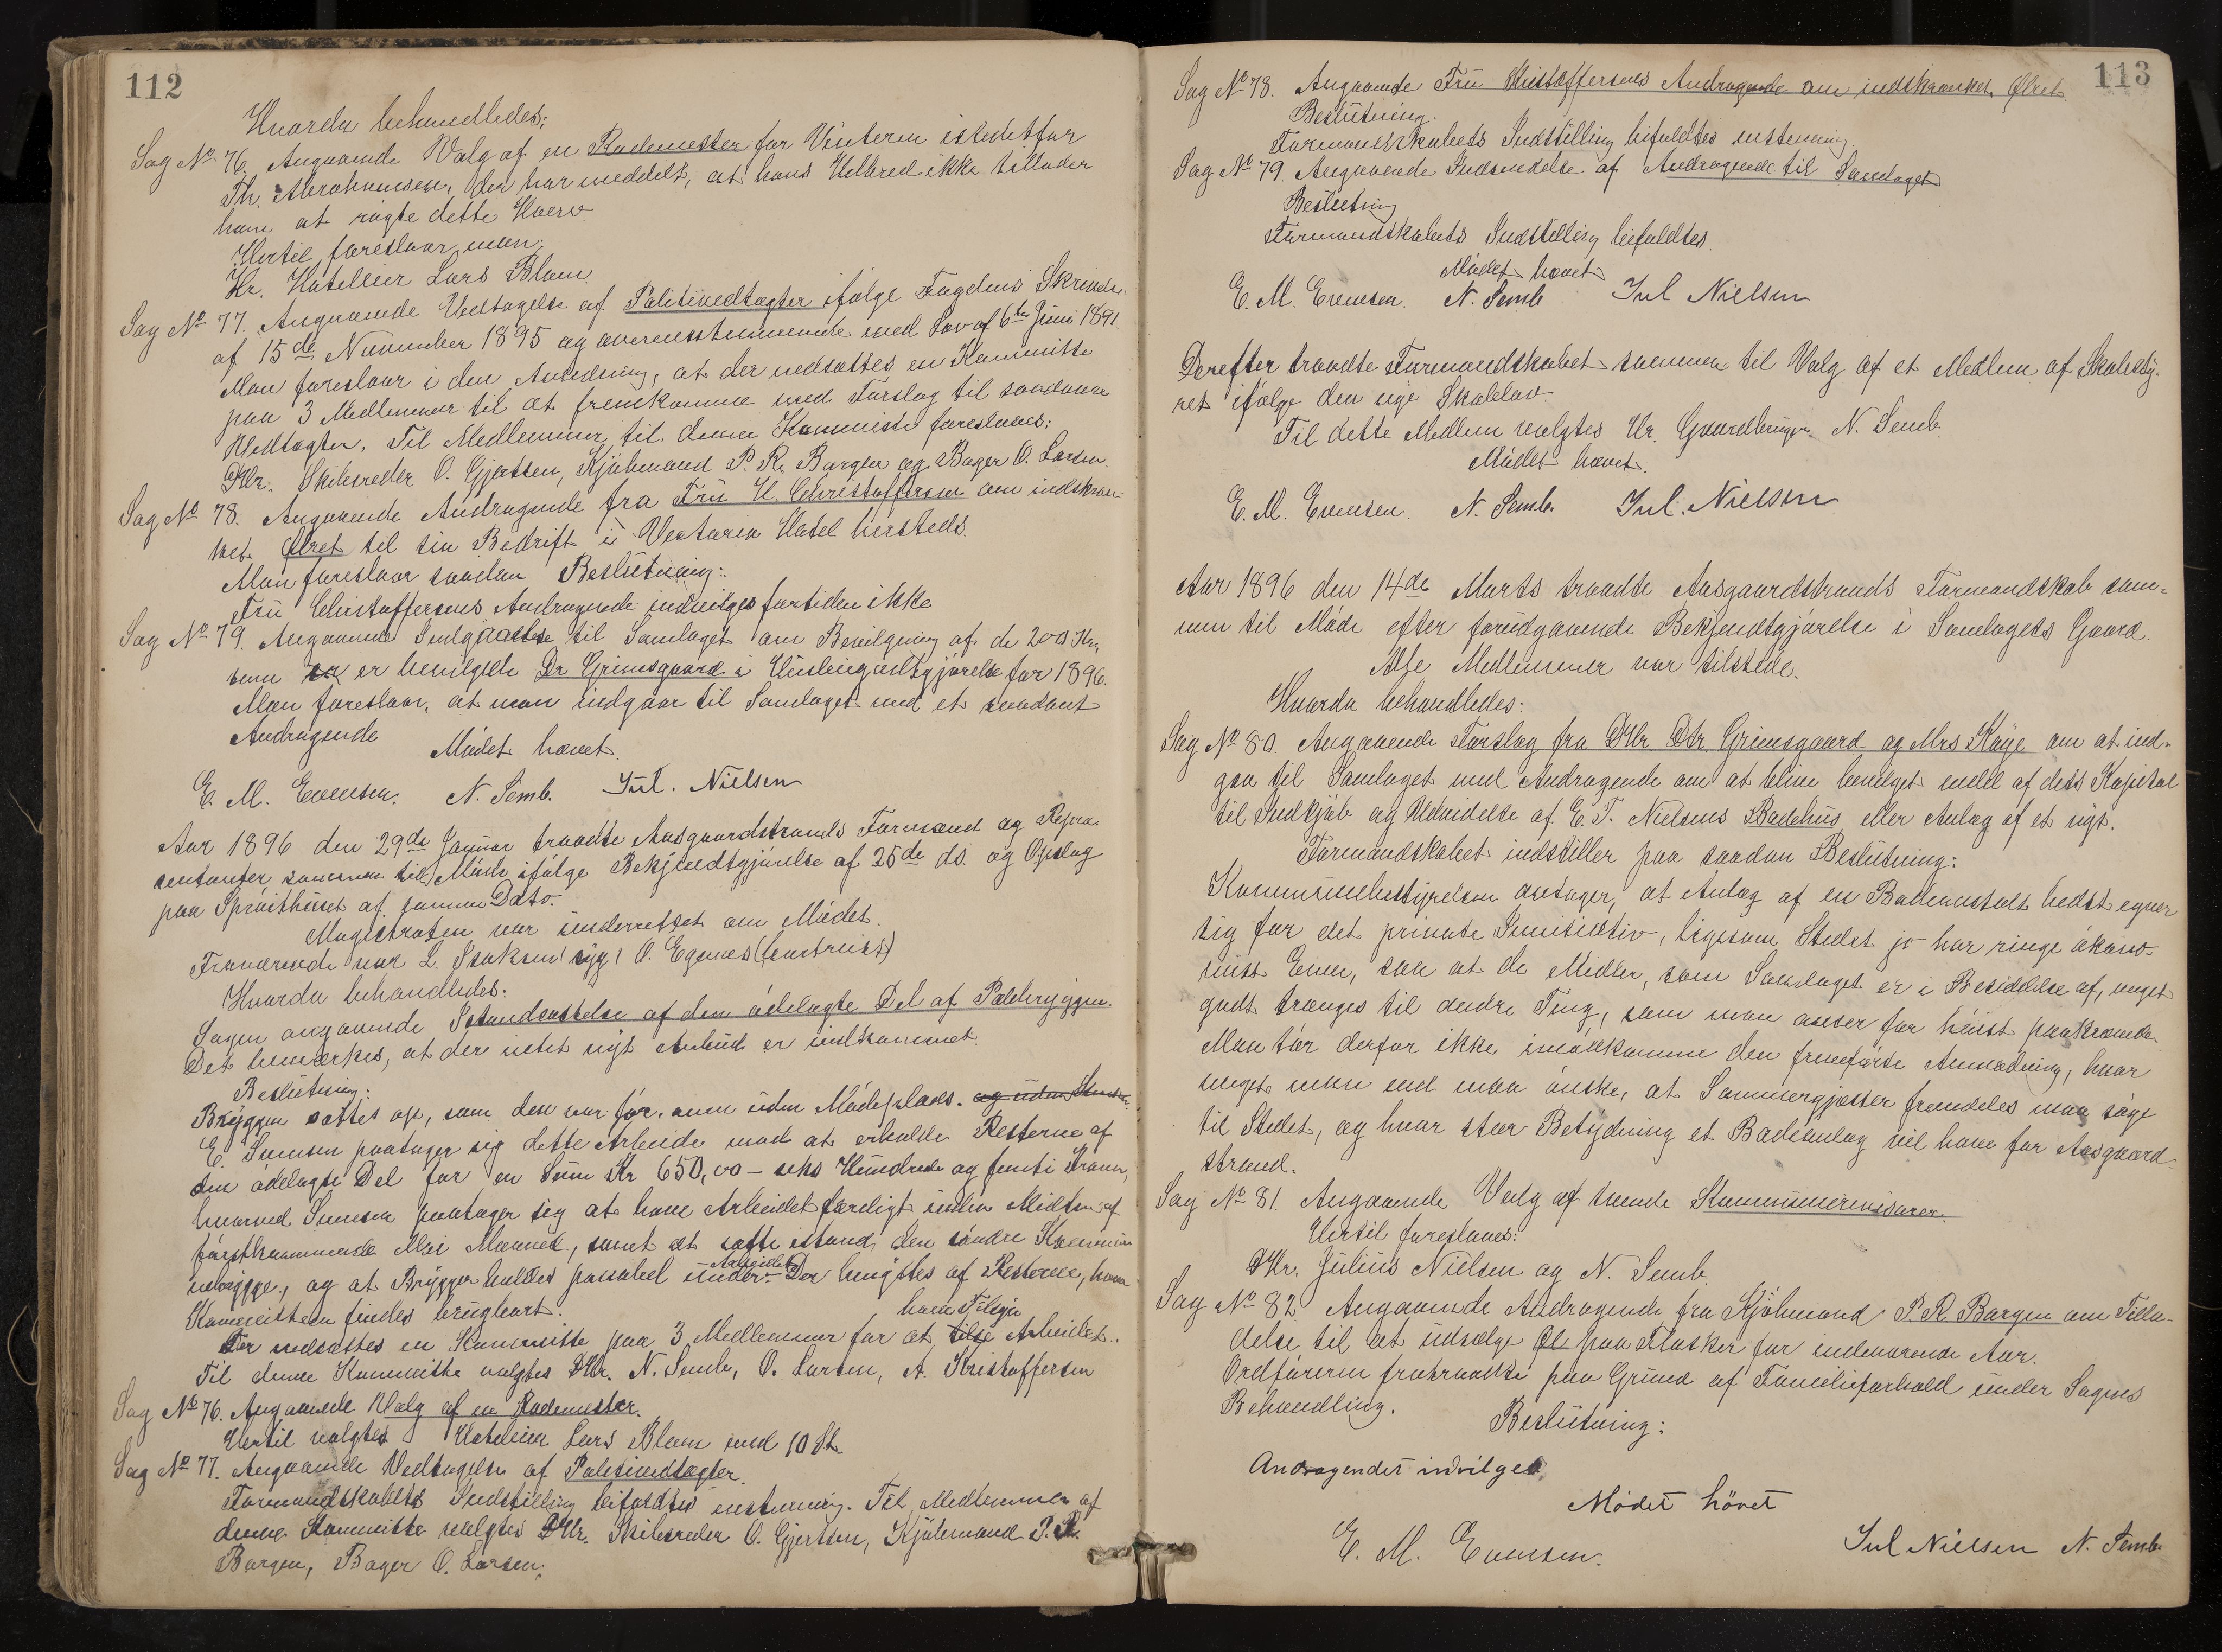 112
Hvorda behandledes:
Sag No 76. Angaaende Valg af en Rodemester for Vinteren istedetfor
Th. Abrahamsen, der har meddelt, at hans Helbred ikke tillader
ham at røgte dette Hverv.
Hertil foreslaar man:
Hr. Hotelleier Lars Blom.
Sag No 77. Angaaende Vedtagelse af Politivedtægter ifølge Fogdens Skrivelse
af 15de November 1895 og overensstemmende med Lov af 6te Juni 1891.
Man foreslaar i den Anledning, at der nedsættes en Kommitte
paa 3 Medlemmer til at fremkomme med Forslag til saadanne
Vedtægter. Til Medlemmer til denne Kommitte foreslaaes:
DHr. Skibsreder O. Gjertsen, Kjøbmand P. R. Bargen og Bager O. Larsen.
Sag No 78. Angaaende Andragende fra Fru H. Christoffersen om indskræn-
ket Ølret til sin Bedrift i Victoria Hotel hersteds.
Man foreslaar saadan Beslutning:
Fru Christoffersens Andragende indvilges fortiden ikke
Sag No 79. Angaaende Indgaaelse til Samlaget om Bevilgning af de 200 Kr,
som er bevilget Dr Grimsgaard i Huslieigodtgjørelse for 1896.
Man foreslaar, at man indgaar til Samlaget med et saadant
Andragende
Mødet hævet.
E. M. Evensen. N. Semb. Jul. Nielsen
Aar 1896 den 29de Januar traadte Aasgaardstrands Formænd og Repræ-
sentanter sammen til Møde ifølge Bekjendtgjørelse af 25de ds. og Opslag
paa Sprøithuset af samme Dato.
Magistraten var underrettet om Mødet.
Fraværende var L. Isaksen (syg) O. Egenes (bortreist)
Hvorda behandledes:
Sagen angaaende Istandsættelse af den ødelagte Del af Pælebryggen.
Det bemærkes, at der intet nyt Anbud er indkommet.
Beslutning:
Bryggen sættes op, som den var før, men uden Mødeplads. og uden
E. Iversen paatager sig dette Arbeide mod at erholde Resterne af
den ødelagte Del for en Sum Kr 650,00 – seks Hundrede og femti Kroner,
hvorved Iversen paatager sig at have Arbeidet færdigt inden Midten af
førstkommende Mai Maaned, samt at sætte istand den søndre Kommune
brygge, og at Bryggen holdes passabel under Arbeidet. Der benyttes af Resterne, hvad
Kommiteen findes brugbart.
Der nedsættes en Kommitte paa 3 Medlemmer for at have Tilsyn Arbeidet.
Til denne Kommitte valgtes DHr. N. Semb, O. Larsen, A. Kristoffersen
Sag No 76. Angaaende Valg af en Rodemester.
Hertil valgtes Hoteleier Lars Blom med 10 St.
Sag No 77. Angaaende Vedtagelse af Politivedtægter.
Formandskabets Indstilling bifaldtes enstemmig. Til Medlemmer af
denne Kommitte valgtes DHr. Skibsreder O. Gjertsen, Kjøbmand P. R.
Bargen, Bager O. Larsen.
113
Sag No 78. Angaaende Fru Kristoffersens Andragende om indskrænket Ølret.
Beslutning.
Formandskabets Indstilling bifaldtes enstemmig
Sag No 79. Angaaende Indsendelse af Andragende til Samlaget
Beslutning
Formandskabets Indstilling bifaldtes.
Mødet hævet
E. M. Evensen. N. Semb Jul Nielsen
Derefter traadte Formandskabet sammen til Valg af et Medlem af Skolesty-
ret ifølge den nye Skolelov.
Til dette Medlem valgtes Hr. Gaardbruger N. Semb.
Mødet hævet.
E. M. Evensen. N. Semb. Jul. Nielsen
Aar 1896 den 14de Marts traadte Aasgaardstrands Formandskab sam-
men til Møde efter forudgaaende Bekjendtgjørelse i Samlagets Gaard.
Alle Medlemmer var tilstede.
Hvorda behandledes:
Sag No 80. Angaaende Forslag fra DHr Dr. Grimsgaard og Mrs Kaye om at ind-
gaa til Samlaget med Andragende om at blive bevilget endel af dets Kapital
til Indkjøb og Udvidelse af E. T. Nielsens Badehus eller Anlæg af et nyt.
Formandskabet indstiller paa saadan Beslutning:
Kommunebestyrelsen antager, at Anlæg af en Badeanstalt bedst egner
sig for det private Initiativ, ligesom Stedet jo har ringe økono-
misk Evne, saa at de Midler, som Samlaget er i Besiddelse af, meget
godt trænges til andre Ting, som man anser for høist paakrævede.
Man tør derfor ikke imødekomme den fremførte Anmodning, hvor
meget man end maa ønske, at Sommergjæster fremdeles maa søge
til Stedet, og hvor stor Betydning et Badeanlæg vil have for Aasgaard-
strand.
Sag No 81. Angaaende Valg af tvende Kommunerevisorer.
Hertil foreslaaes:
DHr. Julius Nielsen og N. Semb.
Sag No 82. Angaaende Andragende fra Kjøbmand P. R. Bargen om Tilla-
delse til at udsælge Øl paa Flasker for indeværende Aar.
Ordføreren fratraadte paa Grund af Familieforhold under Sagens
Behandling.
Beslutning:
Andragendet indvilges
Mødet hævet
E. M. Evensen.
Jul Nielsen N. Semb.